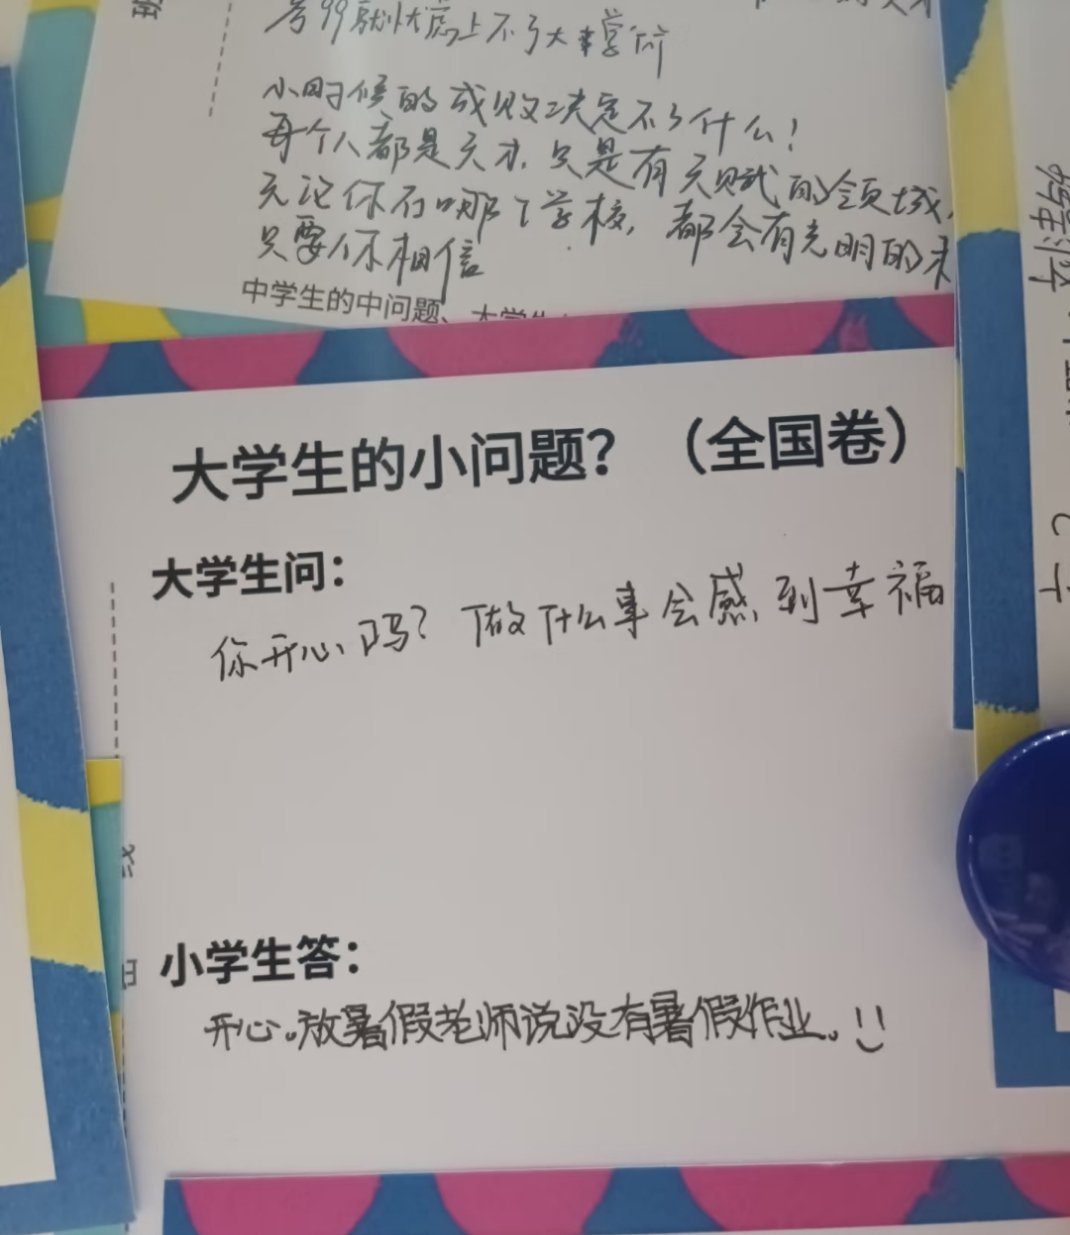 考99就忧虑上不了大学
小时候的成败决定不了什么！
每个人都是天才，只是有天赋的领域
无论你在哪个学校，都会有光明的
只要你相信
中学生的中问题、大学生
大学生的小问题？（全国卷）
大学生问：
你开心吗？做什么事会感到幸福
小学生答：
开心。放暑假老师说没有暑假作业。!!